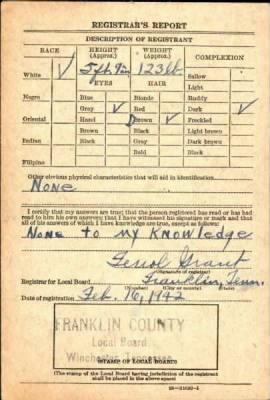 REGISTRAR'S REPORT
DESCRIPTION OF REGISTRANT
RACE HEIGHT (Approx.) WEIGHT (Approx.) COMPLEXION
White ✓ 5 ft. 9 in 123 lb. Sallow
EYES HAIR Light
Negro Blue Blonde Ruddy
Gray ✓ Red ✓ Dark ✓
Oriental Hazel Brown ✓ Freckled
Brown Black Light brown
Indian Black Gray Dark brown
Bald Black
Filipino
Other obvious physical characteristics that will aid in identification
None
I certify that my answers are true; that the person registered has read or has had
read to him his own answers; that I have witnessed his signature or mark and that
all of his answers of which I have knowledge are true, except as follows:
None to my knowledge
Grant
(Signature of registrar)
Registrar for Local Board Franklin, Tenn.
(Number) (City or county) (State)
Date of registration Feb. 16, 1942
FRANKLIN COUNTY
Local Board
Winchester, Tennessee
STAMP OF LOCAL BOARD
(The stamp of the Local Board having jurisdiction of the registrant
shall be placed in the above space)